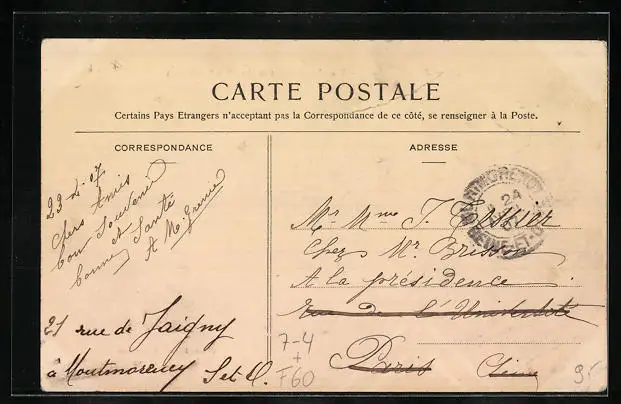 CARTE POSTALE
Certains Pays Etrangers n'acceptant pas la Correspondance de ce côté, se renseigner à la Poste.
CORRESPONDANCE
23 4 07
Chers Amis
bon Souvenir
et
bonne Santé
A M.
21 rue de Jaigny
à Montmorency S et O.
ADRESSE
Mr Mme J. Tessier
Chez Mr Brisson
A la présidence
rue de l'Université
Paris Seine
MONTMORENCY
24
07
SEINE-ET-O
7-4
+
F60
95